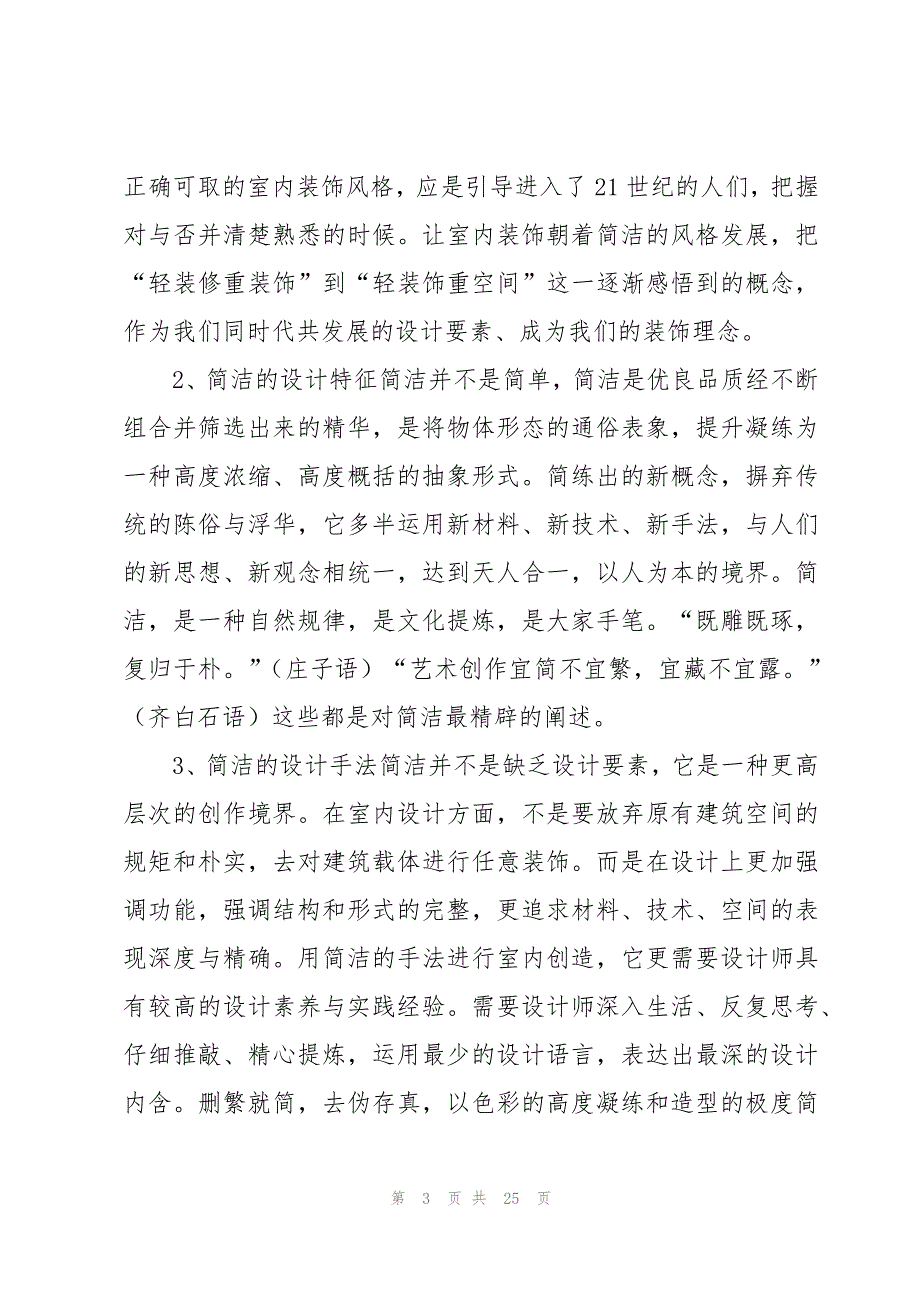 正确可取的室内装饰风格，应是引导进入了 21 世纪的人们，把握
对与否并清楚熟悉的时候。让室内装饰朝着简洁的风格发展，把
“轻装修重装饰”到“轻装饰重空间”这一逐渐感悟到的概念，
作为我们同时代共发展的设计要素、成为我们的装饰理念。
2、简洁的设计特征简洁并不是简单，简洁是优良品质经不断
组合并筛选出来的精华，是将物体形态的通俗表象，提升凝练为
一种高度浓缩、高度概括的抽象形式。简练出的新概念，摒弃传
统的陈俗与浮华，它多半运用新材料、新技术、新手法，与人们
的新思想、新观念相统一，达到天人合一，以人为本的境界。简
洁，是一种自然规律，是文化提炼，是大家手笔。“既雕既琢，
复归于朴。”（庄子语）“艺术创作宜简不宜繁，宜藏不宜露。”
（齐白石语）这些都是对简洁最精辟的阐述。
3、简洁的设计手法简洁并不是缺乏设计要素，它是一种更高
层次的创作境界。在室内设计方面，不是要放弃原有建筑空间的
规矩和朴实，去对建筑载体进行任意装饰。而是在设计上更加强
调功能，强调结构和形式的完整，更追求材料、技术、空间的表
现深度与精确。用简洁的手法进行室内创造，它更需要设计师具
有较高的设计素养与实践经验。需要设计师深入生活、反复思考、
仔细推敲、精心提炼，运用最少的设计语言，表达出最深的设计
内含。删繁就简，去伪存真，以色彩的高度凝练和造型的极度简
第 3 页 共 25 页